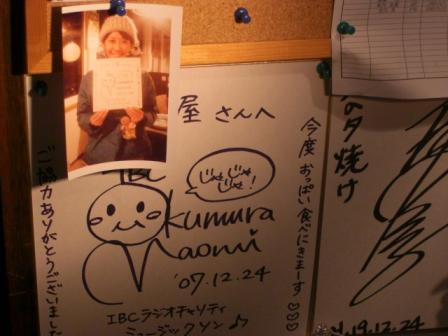 屋 さんへ
今度 おっぱい食べにきまーす♡♡♡
IBC
じゃじゃ
じゃ!
Okumura
Naomi
'07.12.24
IBCラジオチャリティ
ミュージックソン♪
ご協力ありがとうございました
の夕焼け
19.12.24